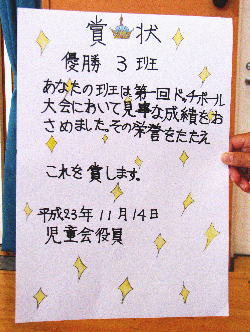 賞状
優勝 3班
あなたの班は第一回ドッチボール
大会において見事な成績をお
さめました。その栄誉をたたえ
これを賞します。
平成23年11月14日
児童会役員